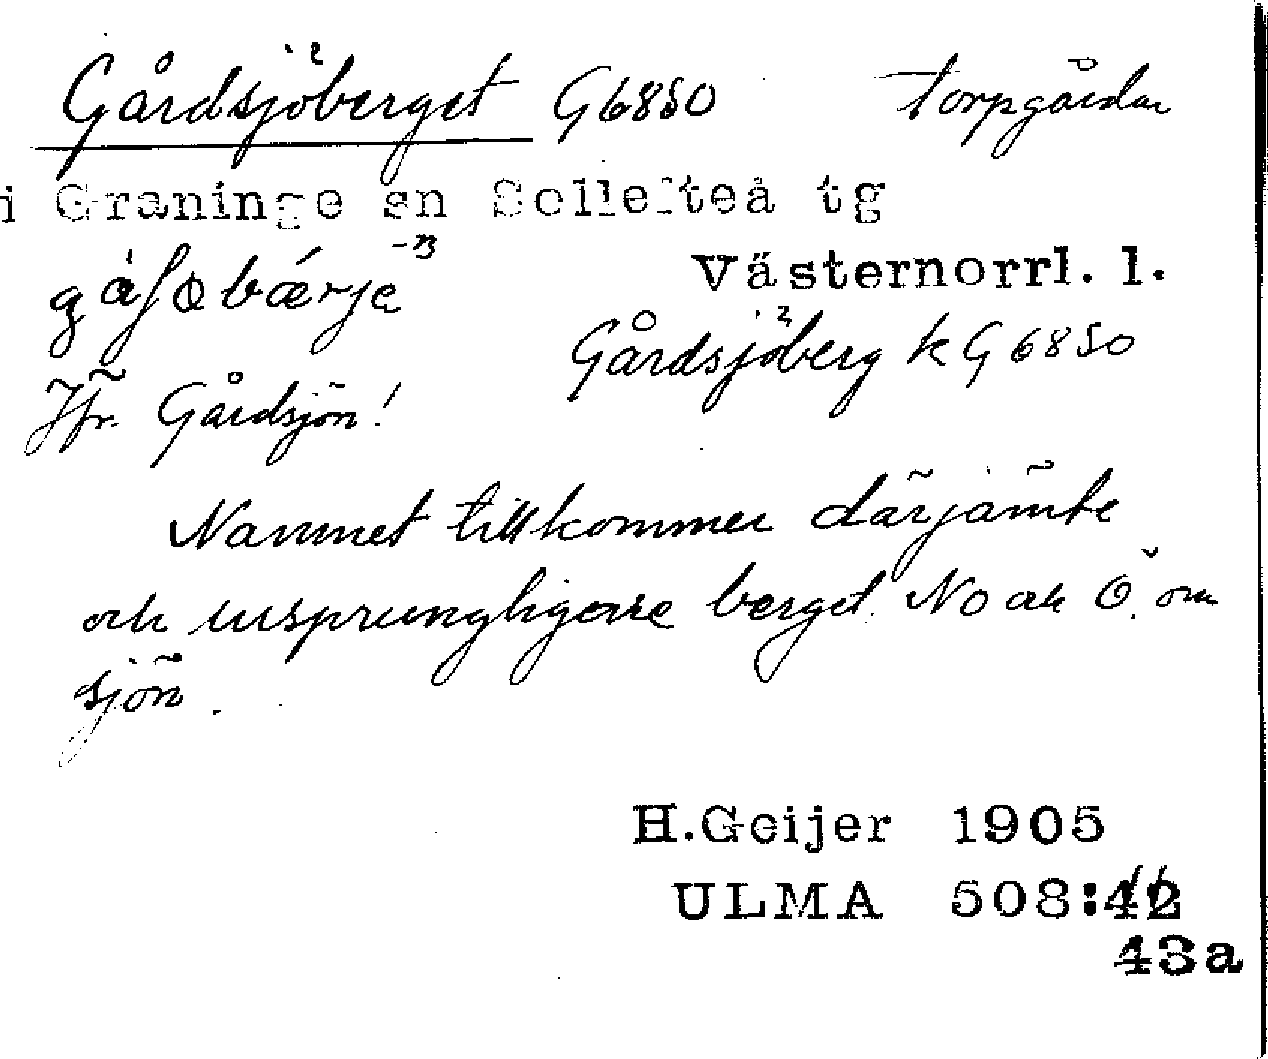 Gårdsjöberget G6850 torpgårdar
i Graninge sn Sollefteå tg
Västernorrl. l.
Gårdsjöberg k G6850
Jfr. Gårdsjön!
Namnet tillkommer därjämte
och ursprungligare berget. N och Ö. om
sjön.
H.Geijer 1905
ULMA 508:42
43a